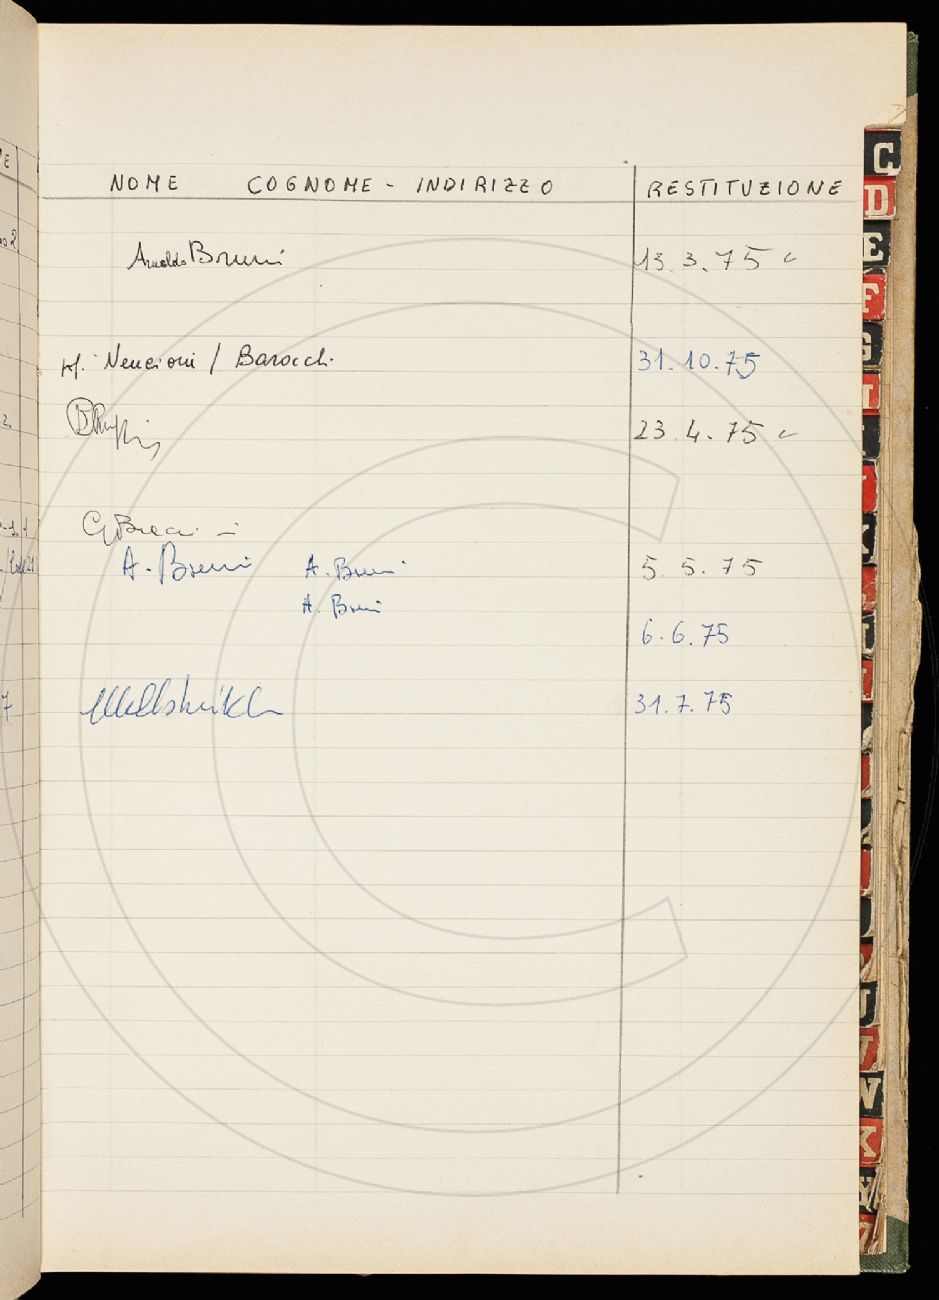 NOME COGNOME - INDIRIZZO RESTITUZIONE
Arnaldo Bruni 13.3.75
rif. Nencioni / Barocchi 31.10.75
23.4.75
A. Bruni A. Bruni 5.5.75
A. Bruni
6.6.75
31.7.75
7
C
D
E
F
G
H
I
J
K
L
U
V
W
X
Y
Z